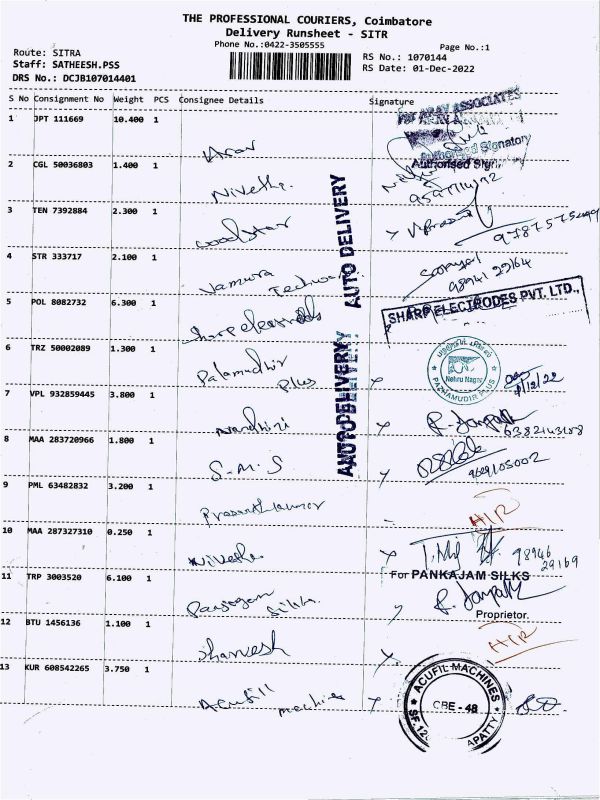 THE PROFESSIONAL COURIERS, Coimbatore
Delivery Runsheet - SITR
Phone No.:0422-3505555
Page No.:1
Route: SITRA
RS No.: 1070144
Staff: SATHEESH.PSS
RS Date: 01-Dec-2022
DRS No.: DCJB107014401
S No Consignment No Weight PCS Consignee Details Signature
1 JPT 111669 10.400 1
For ARAV ASSOCIATES
Authorised Signatory
2 CGL 50036803 1.400 1 Nivetha.
3 TEN 7392884 2.300 1 wood star
4 STR 333717 2.100 1 98941 29164
5 POL 8082732 6.300 1
SHARP ELECTRODES PVT. LTD.,
6 TRZ 50002089 1.300 1 Palamudhir Plus
Nehru Nagar
PAZHAMUDIR PLUS
7 VPL 932859445 3.800 1 Nandhini
8 MAA 283720966 1.800 1 S-M-S 9629105002
9 PML 63482832 3.200 1
10 MAA 287327310 0.250 1 Nivetha 98946 29169
11 TRP 3003520 6.100 1
For PANKAJAM SILKS
Proprietor.
12 BTU 1456136 1.100 1 sharvesh
13 KUR 608542265 3.750 1 Acufill machine
ACUFIL MACHINES
CBE - 48
AUTO DELIVERY
AUTO DELIVERY